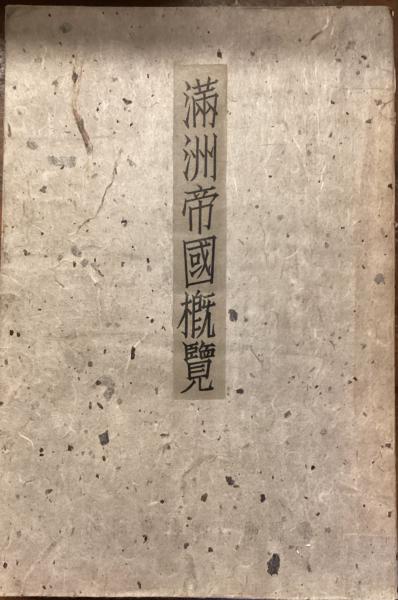 滿洲帝國概覽